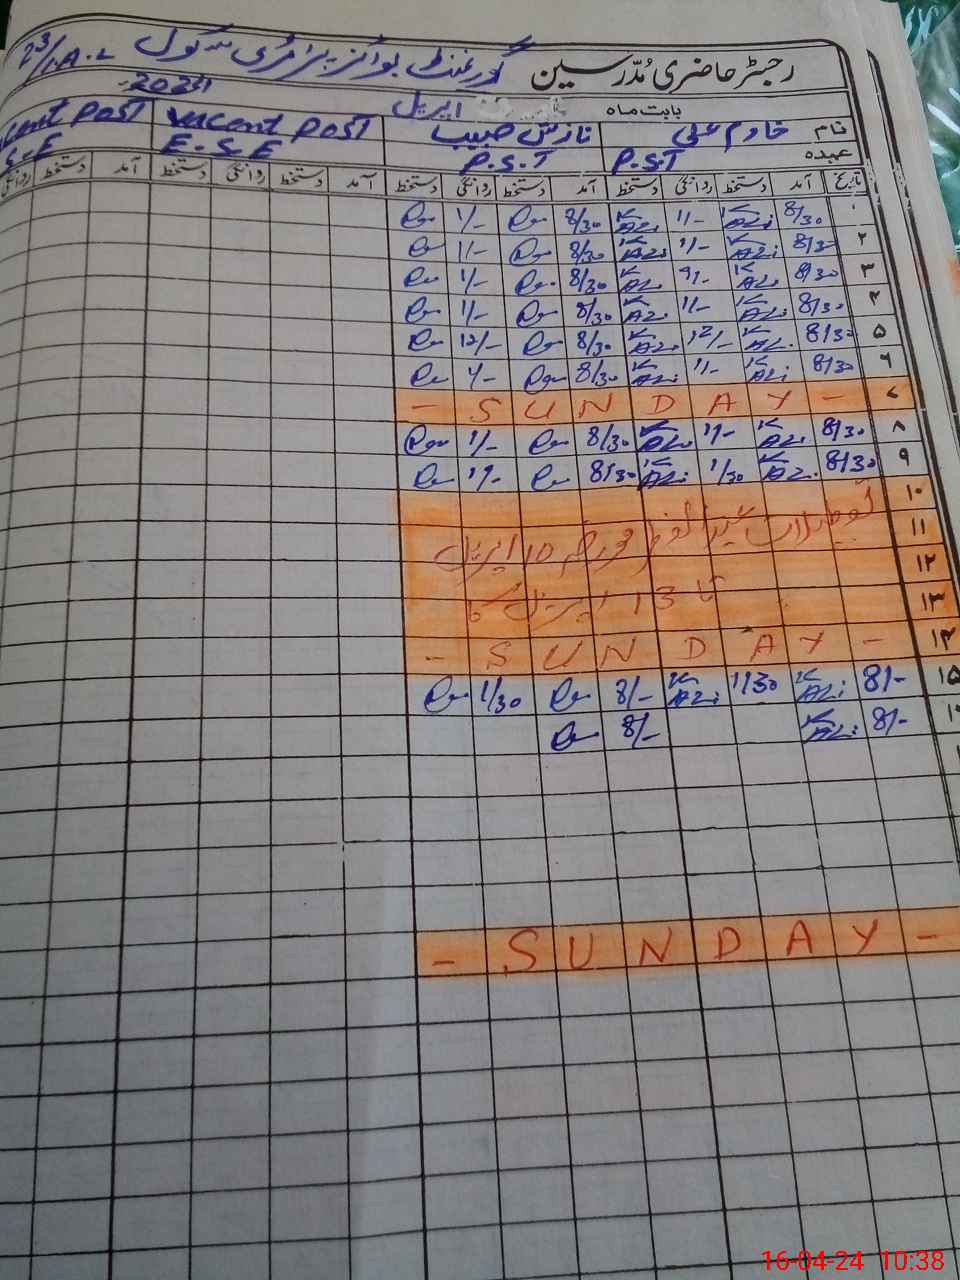 رجسٹر حاضری مدرسین گورنمنٹ بوائز پرائمری سکول 23/1.A.L
بابت ماہ اپریل 2024
نام خادم علی نازش حبیب Vacant Post Vacant Post
عہدہ P.S.T P.S.T E.S.E S-E
تاریخ آمد دستخط روانگی دستخط آمد دستخط روانگی دستخط آمد دستخط روانگی دستخط آمد دستخط روانگی
۱ 8/30 K Ali 1/- K Ali 8/30 1/-
۲ 8/30 K Ali 1/- K Ali 8/30 1/-
۳ 8/30 K Ali K Ali 8/30 1/-
۴ 8/30 K Ali 1/- K Ali 8/30 1/-
۵ 8/30 K Ali 12/- K Ali 8/30 12/-
۶ 8/30 K Ali 1/- K Ali 8/30
۷ - SUNDAY -
۸ 8/30 K Ali 1/- K Ali 8/30 1/-
۹ 8/30 K Ali 1/30 K Ali 8/30
۱۰ تعطیلات عید الفطر مورخہ 10 اپریل
۱۱
۱۲ تا 13 اپریل
۱۳
۱۴ - SUNDAY -
۱۵ 8/- K Ali 1/30 K Ali 8/- 1/30
8/- K Ali 8/-
- SUNDAY -
16-04-24 10:38